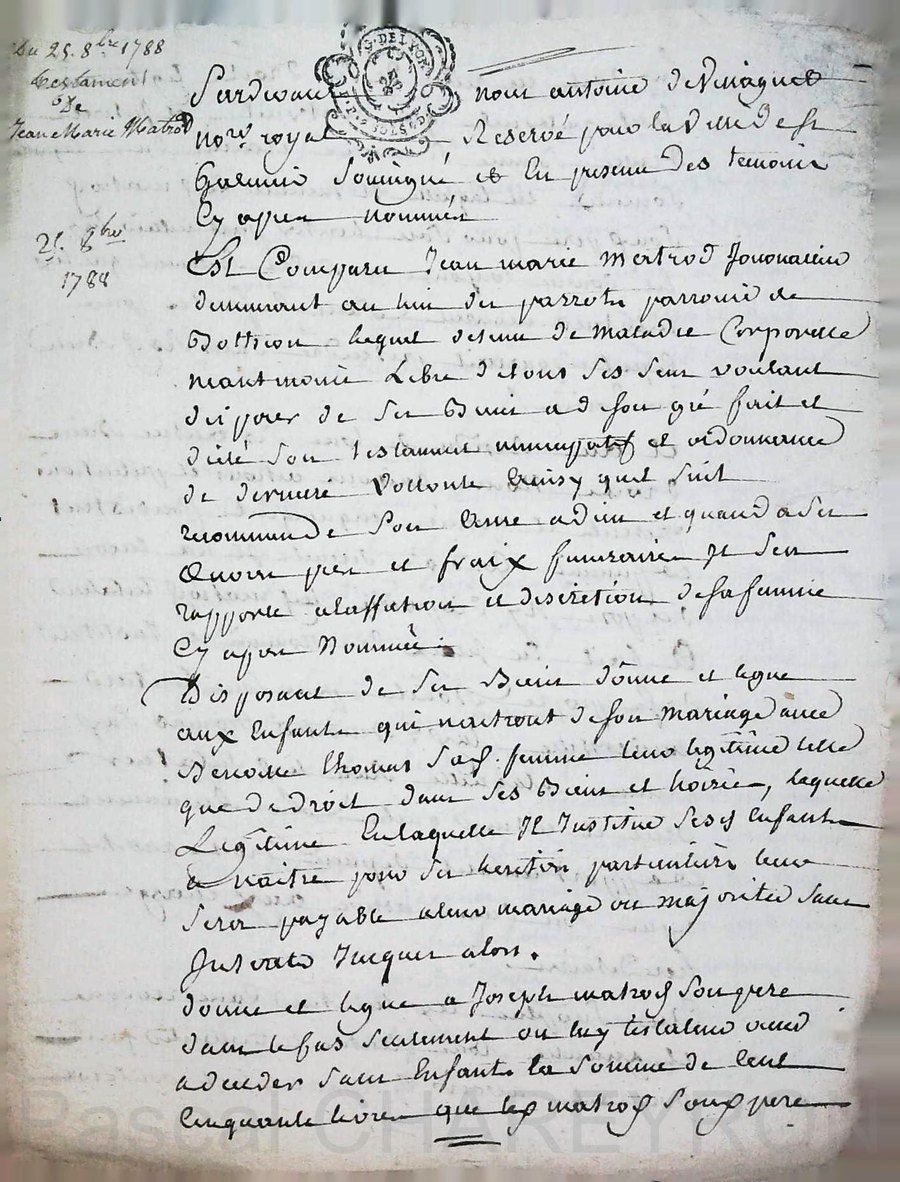 Du 25. 8bre 1788
testament
De
Jean Marie Matrod
25. 8bre
1788
G. DE LYON
Pardevant nous antoine
nore. royal Reservé pour la Ville de st
Galmier Soussigné et En presence des temoins
Cy apres nommés
Est Comparu Jean marie matrod Journalier
demeurant au lieu des parrots parroisse de
lequel detenu de Maladie Corporelle
neantmoins Libre de tous ses sens voulant
disposer de ses Biens a de son gré fait et
dicté son testament nuncupatif et ordonnance
de derniere Vollonté Comme quil suit
recommande Son ame a dieu et quand a ses
œuvres pies et fraix funeraires Il sen
rapporte a laffection et discretion de sa femme
Cy apres Nommée.
Disposant de ses Biens donne et legue
aux Enfants qui naitront de son mariage avec
Benoitte thomas sad. femme leur legitime telle
que de droit dans ses Biens et hoirie, laquelle
Legitime En laquelle Il Institue sesd Enfants
a naitre pour ses heritiers particuliers leur
sera payable a leur mariage ou majorité sans
Interets Jusques alors.
donne et legue a Joseph matrod son pere
dans le cas seulement ou luy testateur vend
a deceder sans Enfants la somme de Cent
Cinquante livres que led matrod sond pere
Pascal CHAREYRON